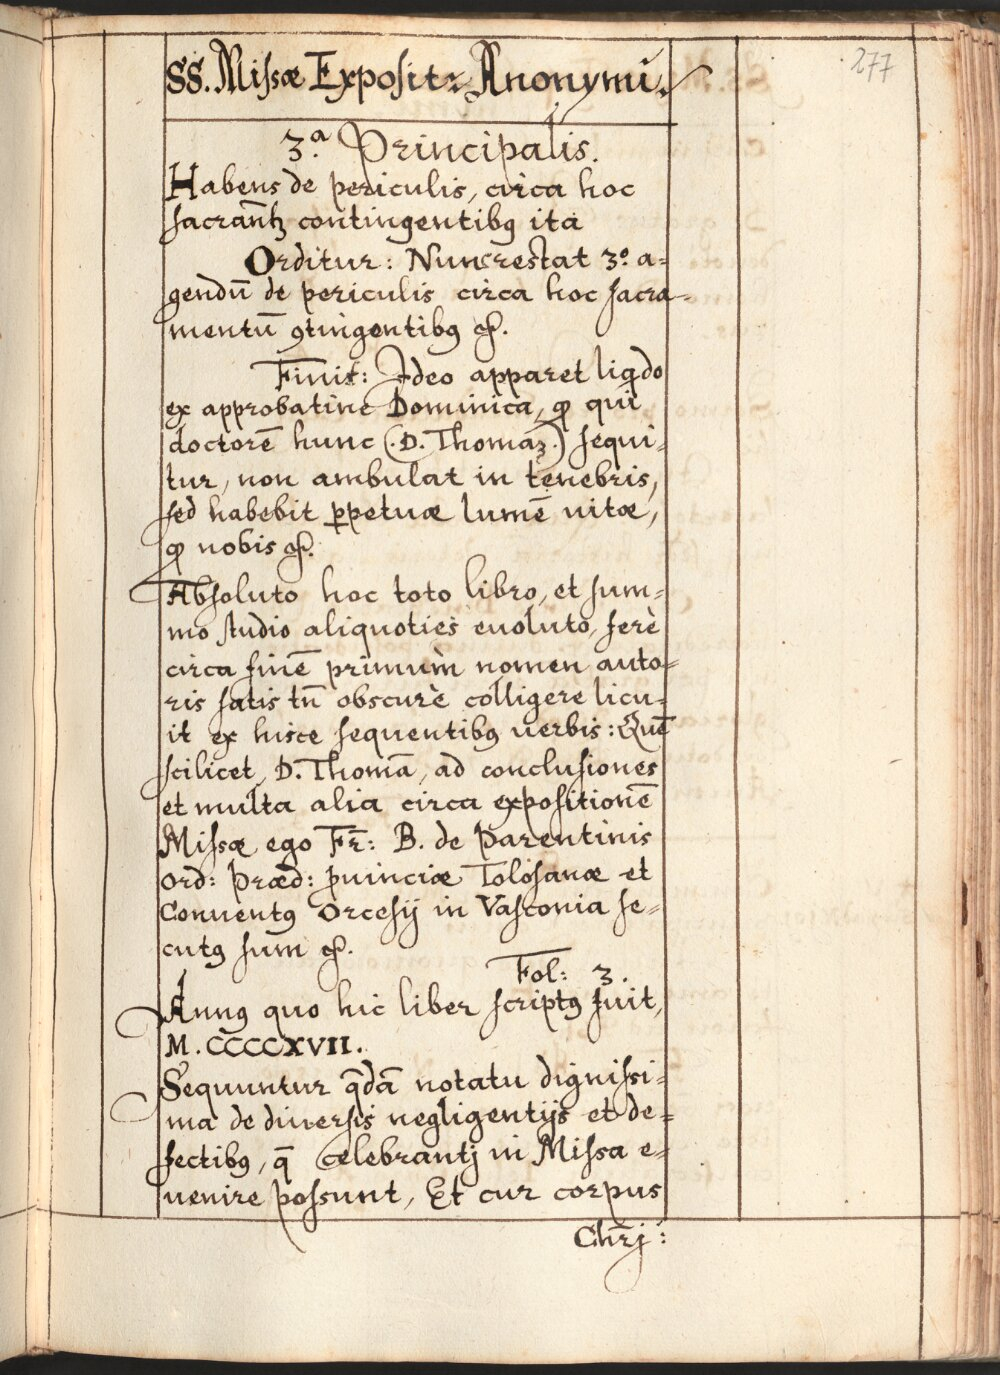 SS. Missæ Exposit: Anonymi.
277
3.ª Principalis.
Habens de periculis, circa hoc
sacramtꝫ contingentibꝯ ita
Orditur: Nunc restat 3.º a-
gendū de periculis circa hoc sacra-
mentū ꝯtingentibꝯ &.
Finit: Ideo apparet liqido
ex approbatine Dominica, qꝫ qui
doctorē hunc (.D. Thomaꝫ.) sequi-
tur, non ambulat in tenebris,
sed habebit ꝑpetuæ lumē uitæ,
qꝫ nobis &.
Absoluto hoc toto libro, et sum-
mo studio aliquoties euoluto, ferè
circa finē primùm nomen auto-
ris satis tn̄ obscurè colligere licu-
it ex hisce sequentibꝯ uerbis: Quē
scilicet, D. Thomā, ad conclusiones
et multa alia circa expositionē
Missæ ego Fr̄: B. de Parentinis
Ord: Præd: ꝓuinciæ Tolosanæ et
Conuentꝯ Orcesij in Vasconia se-
cutꝯ sum &.
Fol: 3.
Annꝯ quo hic liber scriptꝯ fuit,
M.CCCCXVII.
Sequuntur qdā notatu dignissi-
ma de diuersis negligentijs et de-
fectibꝯ, q̄ celebrantj in Missa e-
uenire possunt, Et cur corpus
Chr̄j: